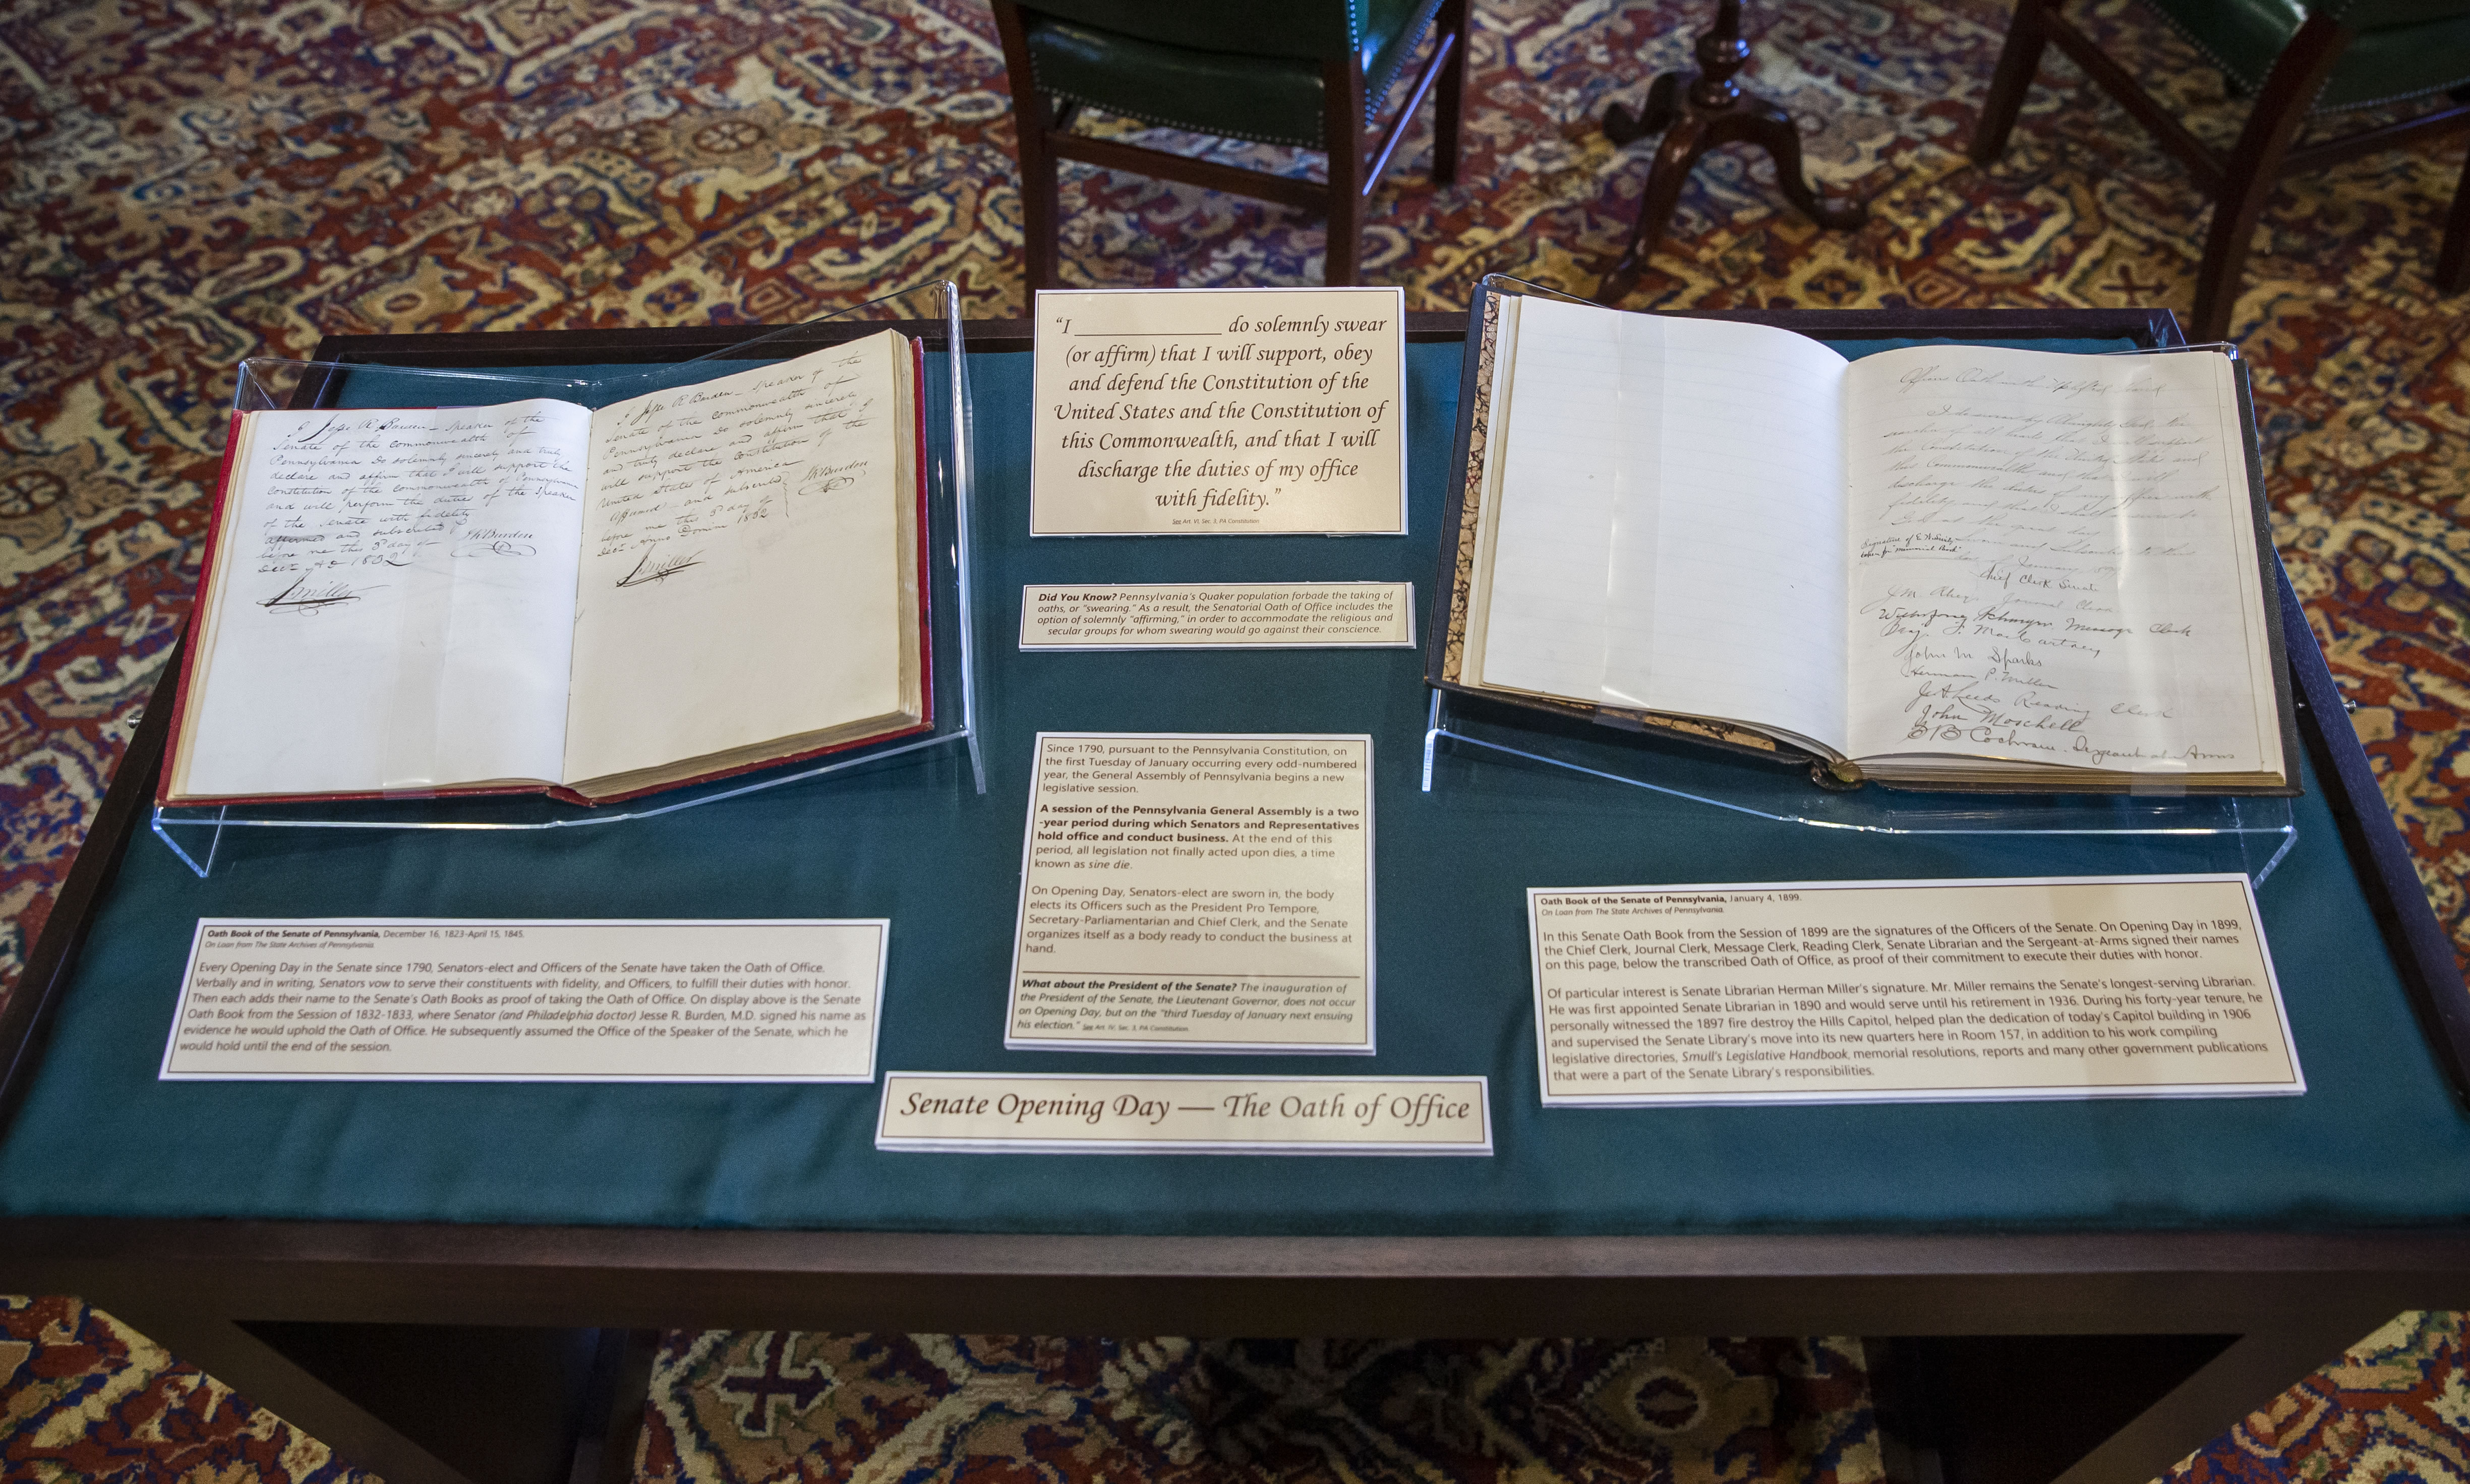 I Jesse R Burden – Speaker of the
Senate of the Commonwealth of
Pennsylvania Do solemnly sincerely and truly
declare and affirm that I will support the
Constitution of the Commonwealth of Pennsylvania
and will perform the duties of the Speaker
of the Senate with fidelity
affirmed and subscribed
before me this 3d day of
JRBurden
Decr AD 1832
Jmiller
I Jesse R Burden – Speaker of the
Senate of the Commonwealth of
Pennsylvania Do solemnly sincerely
and truly declare and affirm that I
will support the Constitution of the
United States of America
Affirmed and subscribed
JRBurden
before me this 3d day of
Decr Anno Domini 1832
Jmiller
“I ______________ do solemnly swear
(or affirm) that I will support, obey
and defend the Constitution of the
United States and the Constitution of
this Commonwealth, and that I will
discharge the duties of my office
with fidelity.”
See Art. VI, Sec. 3, PA Constitution
Did You Know? Pennsylvania's Quaker population forbade the taking of
oaths, or "swearing." As a result, the Senatorial Oath of Office includes the
option of solemnly "affirming," in order to accommodate the religious and
secular groups for whom swearing would go against their conscience.
Since 1790, pursuant to the Pennsylvania Constitution, on
the first Tuesday of January occurring every odd-numbered
year, the General Assembly of Pennsylvania begins a new
legislative session.
A session of the Pennsylvania General Assembly is a two
-year period during which Senators and Representatives
hold office and conduct business. At the end of this
period, all legislation not finally acted upon dies, a time
known as sine die.
On Opening Day, Senators-elect are sworn in, the body
elects its Officers such as the President Pro Tempore,
Secretary-Parliamentarian and Chief Clerk, and the Senate
organizes itself as a body ready to conduct the business at
hand.
What about the President of the Senate? The inauguration of
the President of the Senate, the Lieutenant Governor, does not occur
on Opening Day, but on the "third Tuesday of January next ensuing
his election." See Art. IV, Sec. 3, PA Constitution.
I do swear by Almighty God, the
searcher of all hearts that I will support
the Constitution of the United States and
this Commonwealth and that I will
discharge the duties of my office with
fidelity
Signature of
taken for "Memorial Book"
Chief Clerk Senate
Journal Clerk
Message Clerk
John M Sparks
Herman P. Miller
Reading Clerk
John Moschell
Cochran. Sergeant at Arms
Oath Book of the Senate of Pennsylvania, December 16, 1823-April 15, 1845.
On Loan from The State Archives of Pennsylvania.
Every Opening Day in the Senate since 1790, Senators-elect and Officers of the Senate have taken the Oath of Office.
Verbally and in writing, Senators vow to serve their constituents with fidelity, and Officers, to fulfill their duties with honor.
Then each adds their name to the Senate's Oath Books as proof of taking the Oath of Office. On display above is the Senate
Oath Book from the Session of 1832-1833, where Senator (and Philadelphia doctor) Jesse R. Burden, M.D. signed his name as
evidence he would uphold the Oath of Office. He subsequently assumed the Office of the Speaker of the Senate, which he
would hold until the end of the session.
Oath Book of the Senate of Pennsylvania, January 4, 1899.
On Loan from The State Archives of Pennsylvania.
In this Senate Oath Book from the Session of 1899 are the signatures of the Officers of the Senate. On Opening Day in 1899,
the Chief Clerk, Journal Clerk, Message Clerk, Reading Clerk, Senate Librarian and the Sergeant-at-Arms signed their names
on this page, below the transcribed Oath of Office, as proof of their commitment to execute their duties with honor.
Of particular interest is Senate Librarian Herman Miller's signature. Mr. Miller remains the Senate's longest-serving Librarian.
He was first appointed Senate Librarian in 1890 and would serve until his retirement in 1936. During his forty-year tenure, he
personally witnessed the 1897 fire destroy the Hills Capitol, helped plan the dedication of today's Capitol building in 1906
and supervised the Senate Library's move into its new quarters here in Room 157, in addition to his work compiling
legislative directories, Smull's Legislative Handbook, memorial resolutions, reports and many other government publications
that were a part of the Senate Library's responsibilities.
Senate Opening Day — The Oath of Office